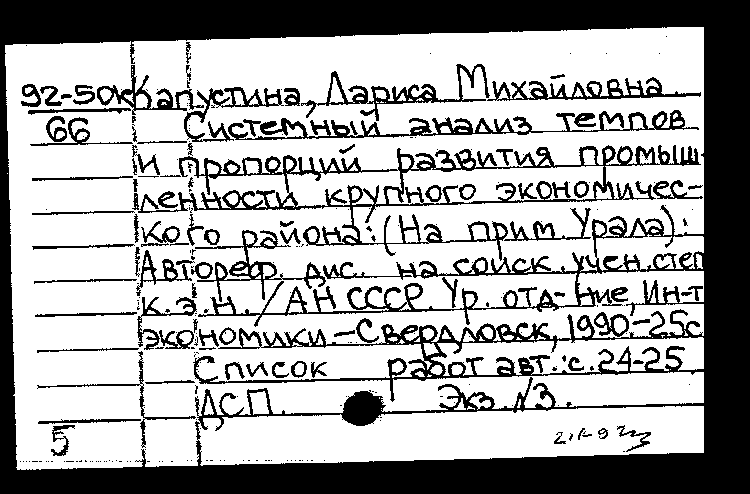 92-50к Капустина, Лариса Михайловна.
66 Системный анализ темпов
и пропорций развития промыш-
ленности крупного экономичес-
кого района: (На прим. Урала):
Автореф. дис. на соиск. учен. степ
к. э. н. / АН СССР. Ур. отд-ние, Ин-т
экономики. - Свердловск, 1990. - 25с
Список работ авт.: с. 24-25
ДСП. Экз. №3.
5